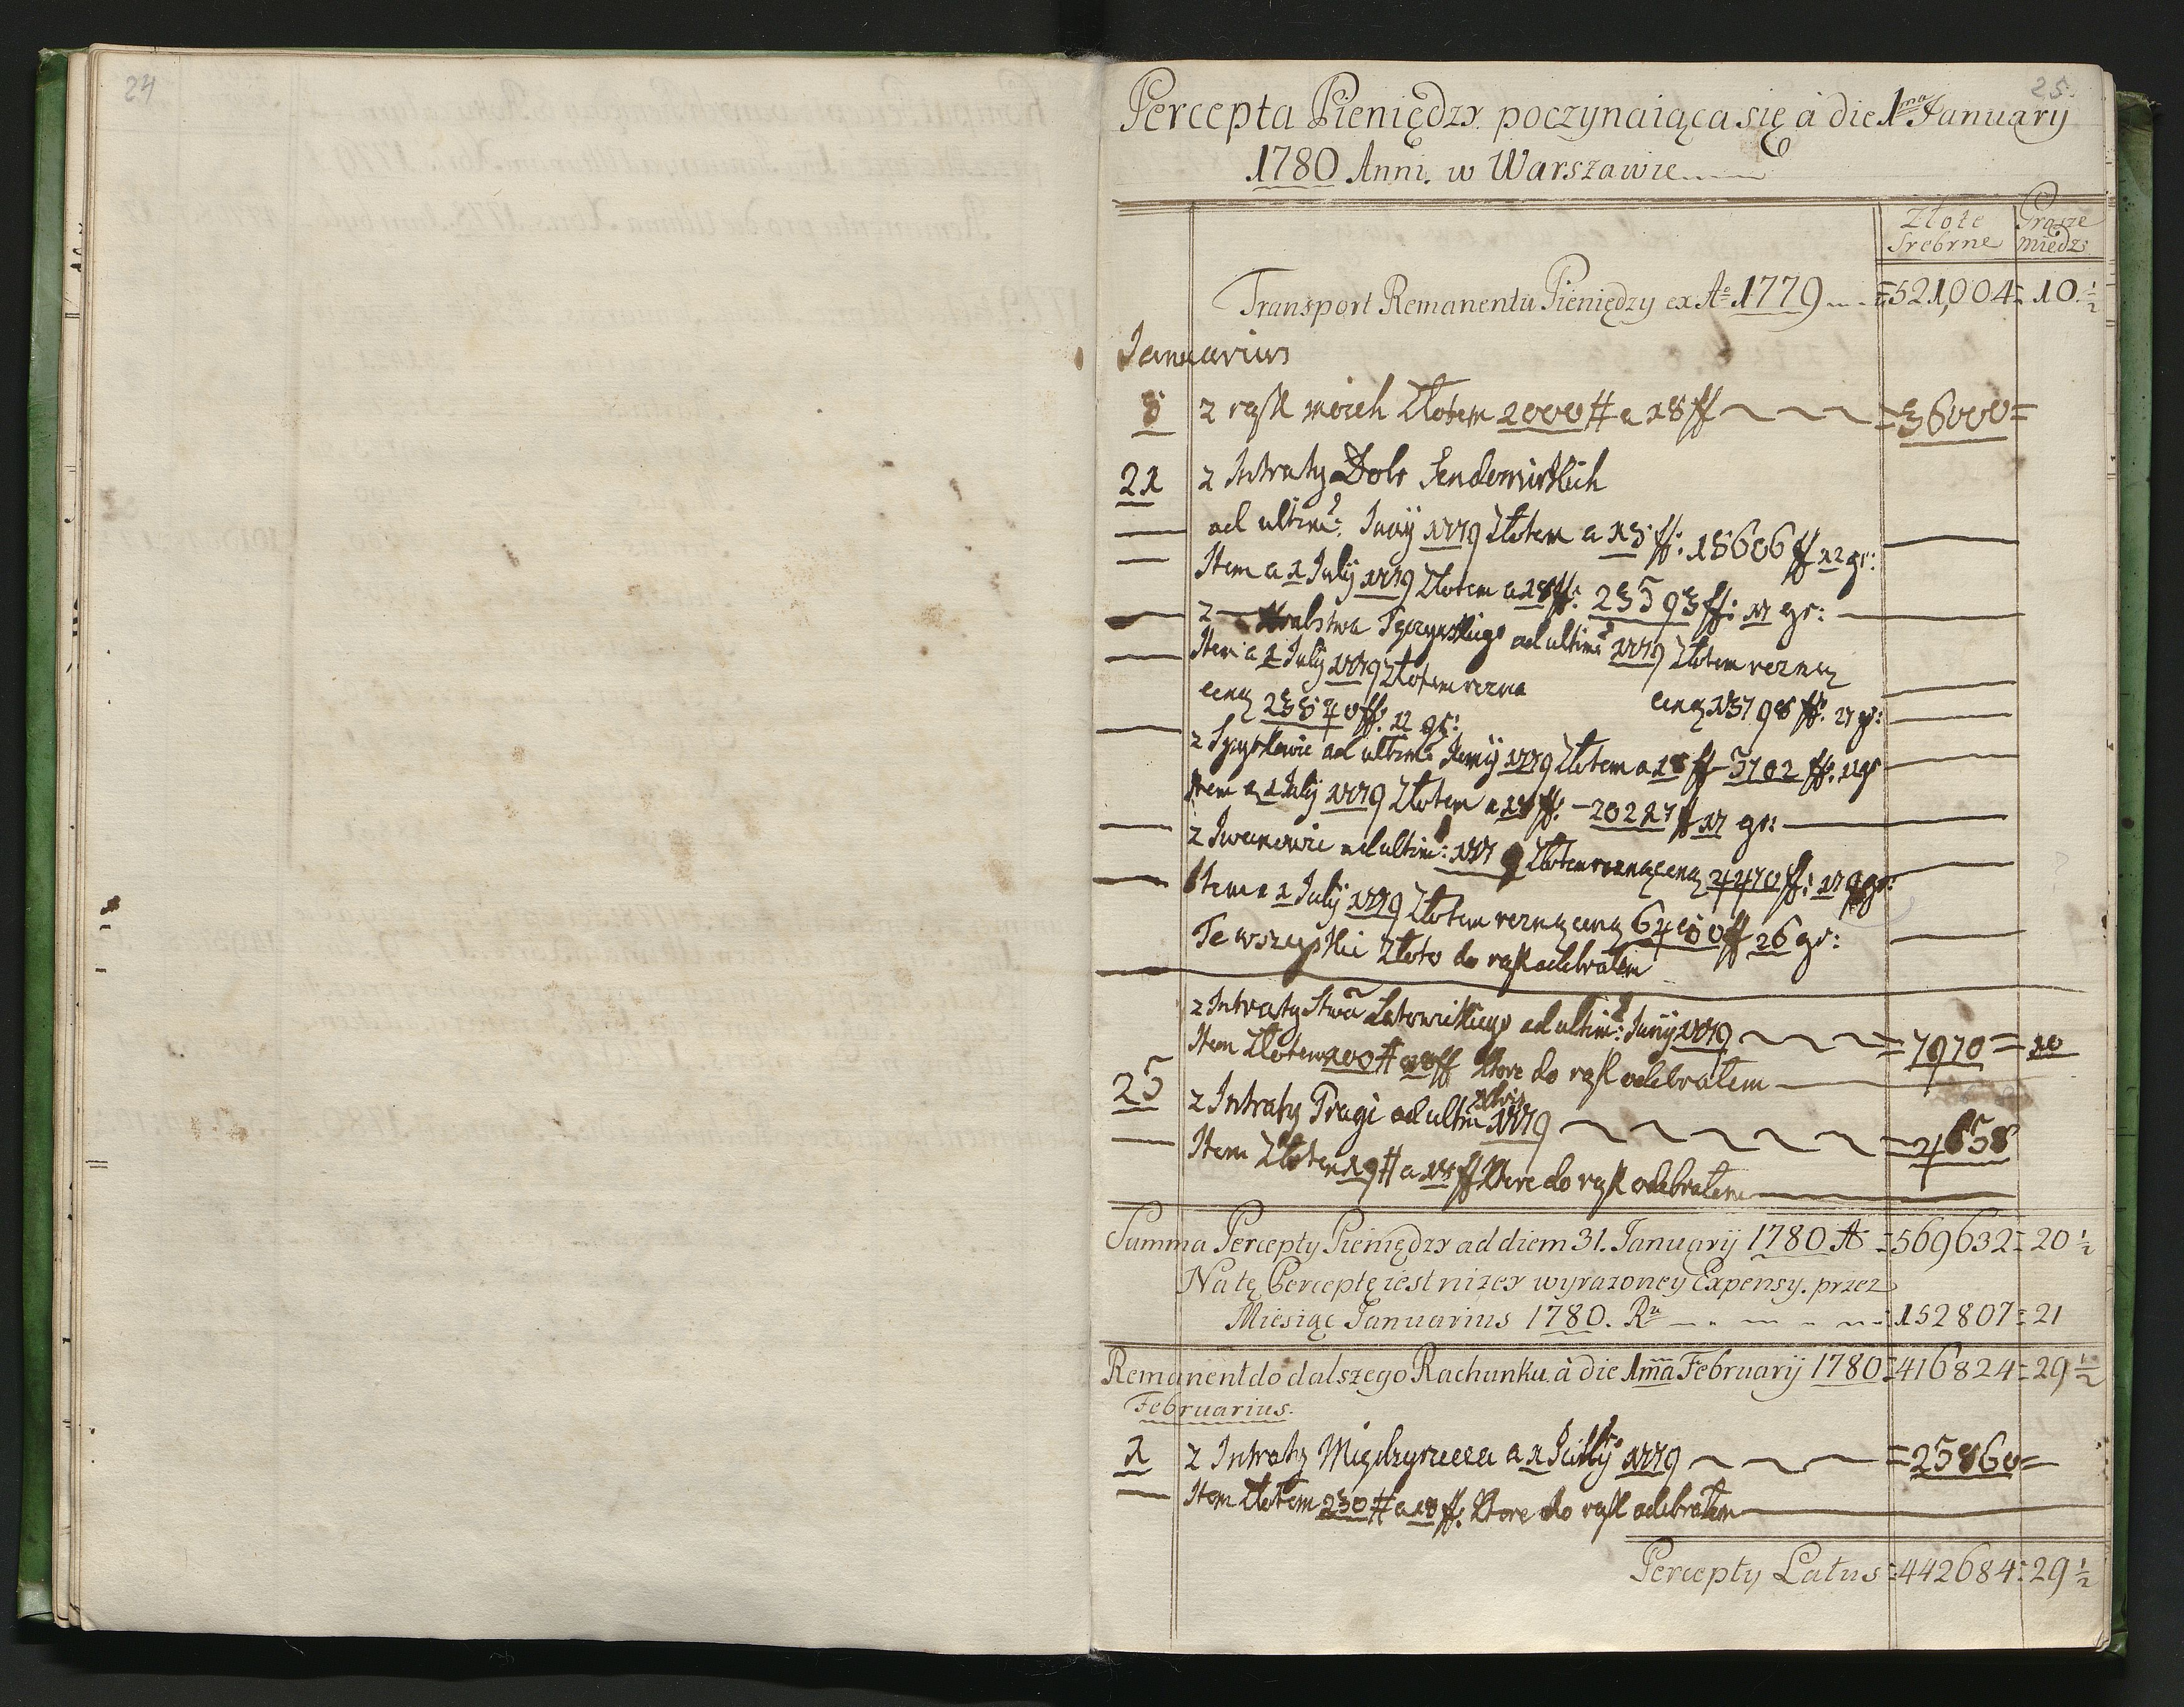 24
25.
Percepta Pieniędzy. poczynaiąca się à die 1ma January
1780 Anni. w Warszawie
Złote Grosze
Srebrne miedz:
Transport Remanentu Pieniędzy ex Ao 1779 =521,004= 10. 1/2
Januarius
8 z rąk moich Złotem 2000 # a 18 ff =36000=
21 z Intraty Dobr Sendomirskich
ad ultim: Junÿ 1779 Złotem a 18 ff: 18606 ff 12 gr:
Item a 1 Julÿ 1779 Złotem a 18 ff: 23593 ff: 17 gr:
z Hrabstwa Tęczyńskiego ad ultim: 1779 Złotem rożną
ceną 13798 ff: 27 gr:
Item a 1 Julÿ 1779 Złotem rożna
ceną 23840 ff: 12 gr:
z ad ultim: Junÿ 1779 Złotem a 18 ff 3702 ff: 11 gr
Item a 1 Julÿ 1779 Złotem a 18 ff: – 20217 ff 17 gr:
z Iwanowic ad ultim: 1779 Złotem rożną ceną 4470 ff: 17 gr:
Item a 1 Julÿ 1779 Złotem rożną ceną 6480 ff 26 gr:
Te wszystkie Złoto do rąk odebrałem
z Intraty Stwa Latowickiego ad ultim: Junÿ 1779 =7970= 10
Item Złotem 100 # a 18 ff Ktore do rąk odebrałem
25 z Intraty Pragi ad ultim Xbris 1779 =4658
Item Złotem 19 # a 18 ff Ktore do rąk odebrałem
Summa Percepty Pieniędzy ad diem 31. January 1780 A =569632= 20 1/2
Na tę Perceptę iest niżey wyrażoney Expensy. przez
Miesiąc Januarius 1780. Ru =152807= 21
Remanent do dalszego Rachunku à die 1ma Februarÿ 1780 =416824= 29 1/2
Februarius.
1 z Intraty Międzyrzecza a 1 Julÿ 1779 =25860=
Item Złotem 230 # a 18 ff: Ktore do rąk odebrałem
Percepty Latus =442684= 29 1/2